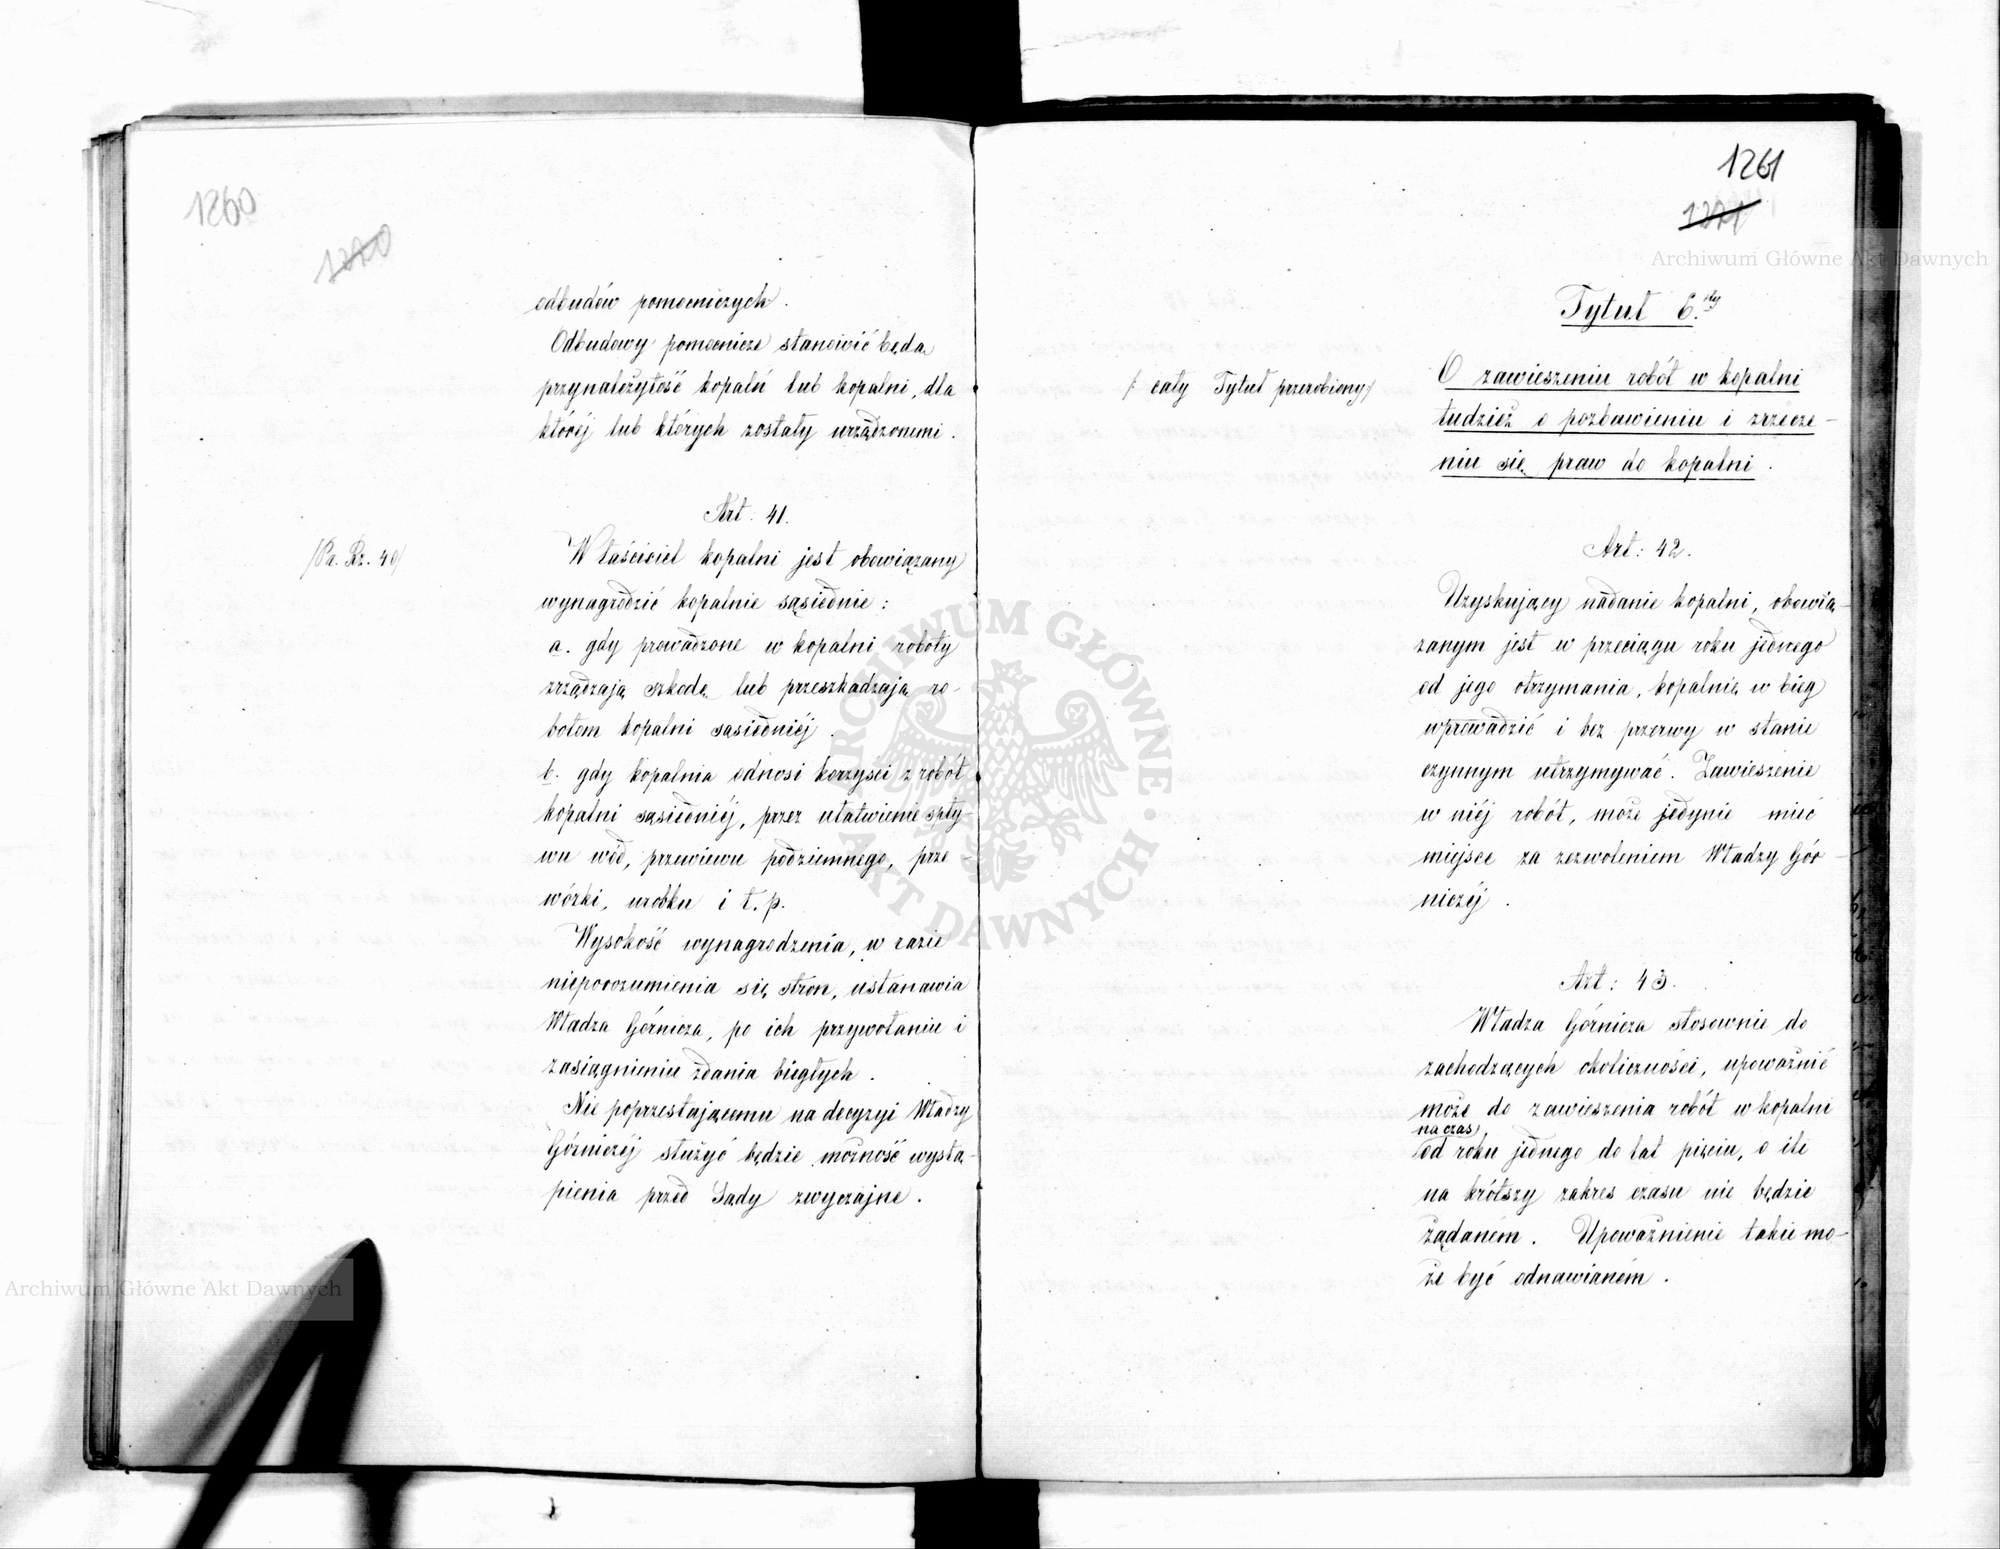 1260
1270
odbudów pomocniczych.
Odbudowy pomocnicze stanowić będą
przynależytość kopalń lub kopalni, dla
któréj lub których zostały urządzonemi.
Art. 41.
/Pr. Rz. 40/
Właściciel kopalni jest obowiązany
wynagrodzić kopalnie sąsiednie:
a. gdy prowadzone w kopalni roboty
zrządzają szkodę lub przeszkadzają ro-
botom kopalni sąsiedniéj.
b. gdy kopalnia odnosi korzyści z robót
kopalni sąsiedniéj, przez ułatwienie spły-
wu wód, przewiewu podziemnego, prze-
wózki, urobku i t. p.
Wysokość wynagrodzenia, w razie
nieporozumienia się stron, ustanawia
Władza Górnicza, po ich przywołaniu i
zasiągnieniu zdania biegłych.
Nie poprzestającemu na decyzyi Władzy
Górniczéj służyć będzie możność wystą-
pienia przed Sądy zwyczajne.
1261
1271
Tytuł 6.sty
/: cały Tytuł przerobiony/
O zawieszeniu robót w kopalni
tudzież o pozbawieniu i zrzecze-
niu się praw do kopalni.
Art: 42.
Uzyskujący nadanie kopalni, obowią-
zanym jest w przeciągu roku jednego
od jego otrzymania, kopalnię w bieg
wprowadzić i bez przerwy w stanie
czynnym utrzymywać. Zawieszenie
w niéj robót, może jedynie mieć
miejsce za zezwoleniem Władzy Gór-
niczéj.
Art: 43.
Władza Górnicza stosownie do
zachodzących okoliczności, upoważnić
może do zawieszenia robót w kopalni
na czas
od roku jednego do lat pięciu, o ile
na krótszy zakres czasu nie będzie
żądaném. Upoważnienie takie mo-
że być odnawianém.
Archiwum Główne Akt Dawnych
Archiwum Główne Akt Dawnych
ARCHIWUM GŁÓWNE AKT DAWNYCH